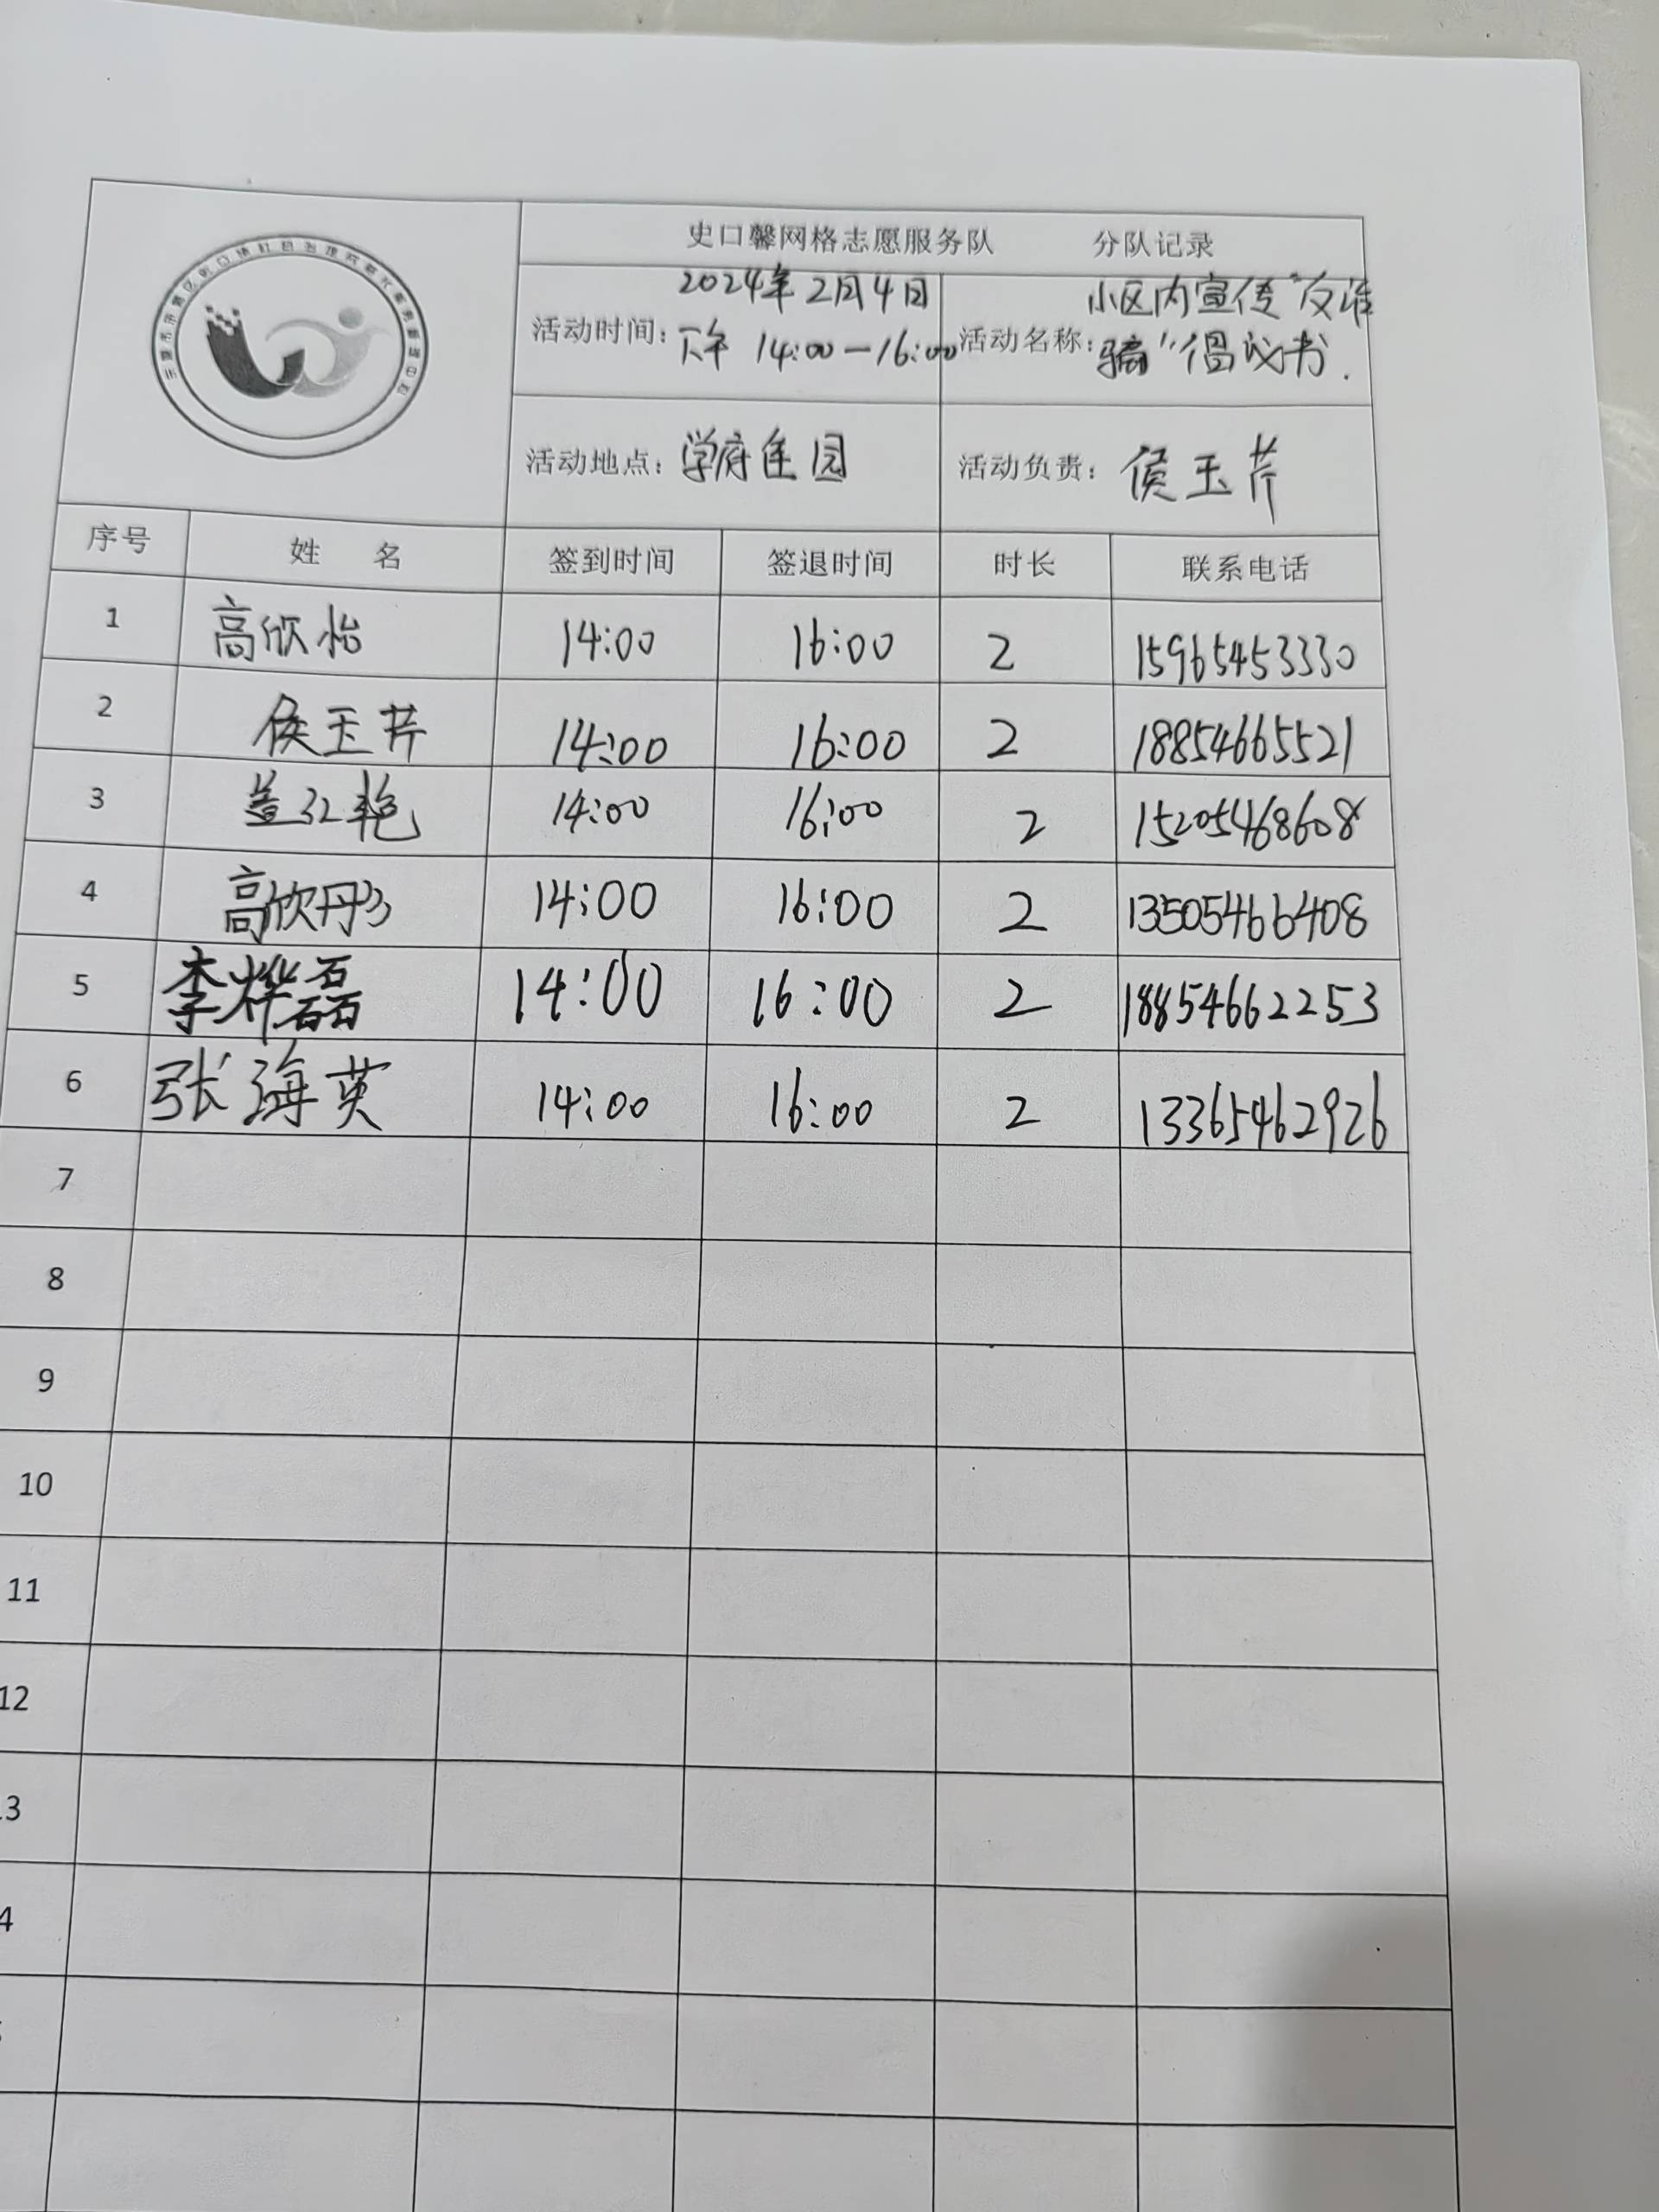 史口馨网格志愿服务队 分队记录
活动时间: 2024年2月4日
下午 14:00-16:00
活动名称: 小区内宣传"反诈
骗"倡议书.
活动地点: 学府佳园
活动负责: 侯玉芹
序号 姓 名 签到时间 签退时间 时长 联系电话
1 高欣怡 14:00 16:00 2 15965453330
2 侯玉芹 14:00 16:00 2 18854665521
3 盖红艳 14:00 16:00 2 15205468608
4 高欣彤 14:00 16:00 2 13505466408
5 李烨磊 14:00 16:00 2 18854662253
6 张海英 14:00 16:00 2 13365462926
7
8
9
10
11
12